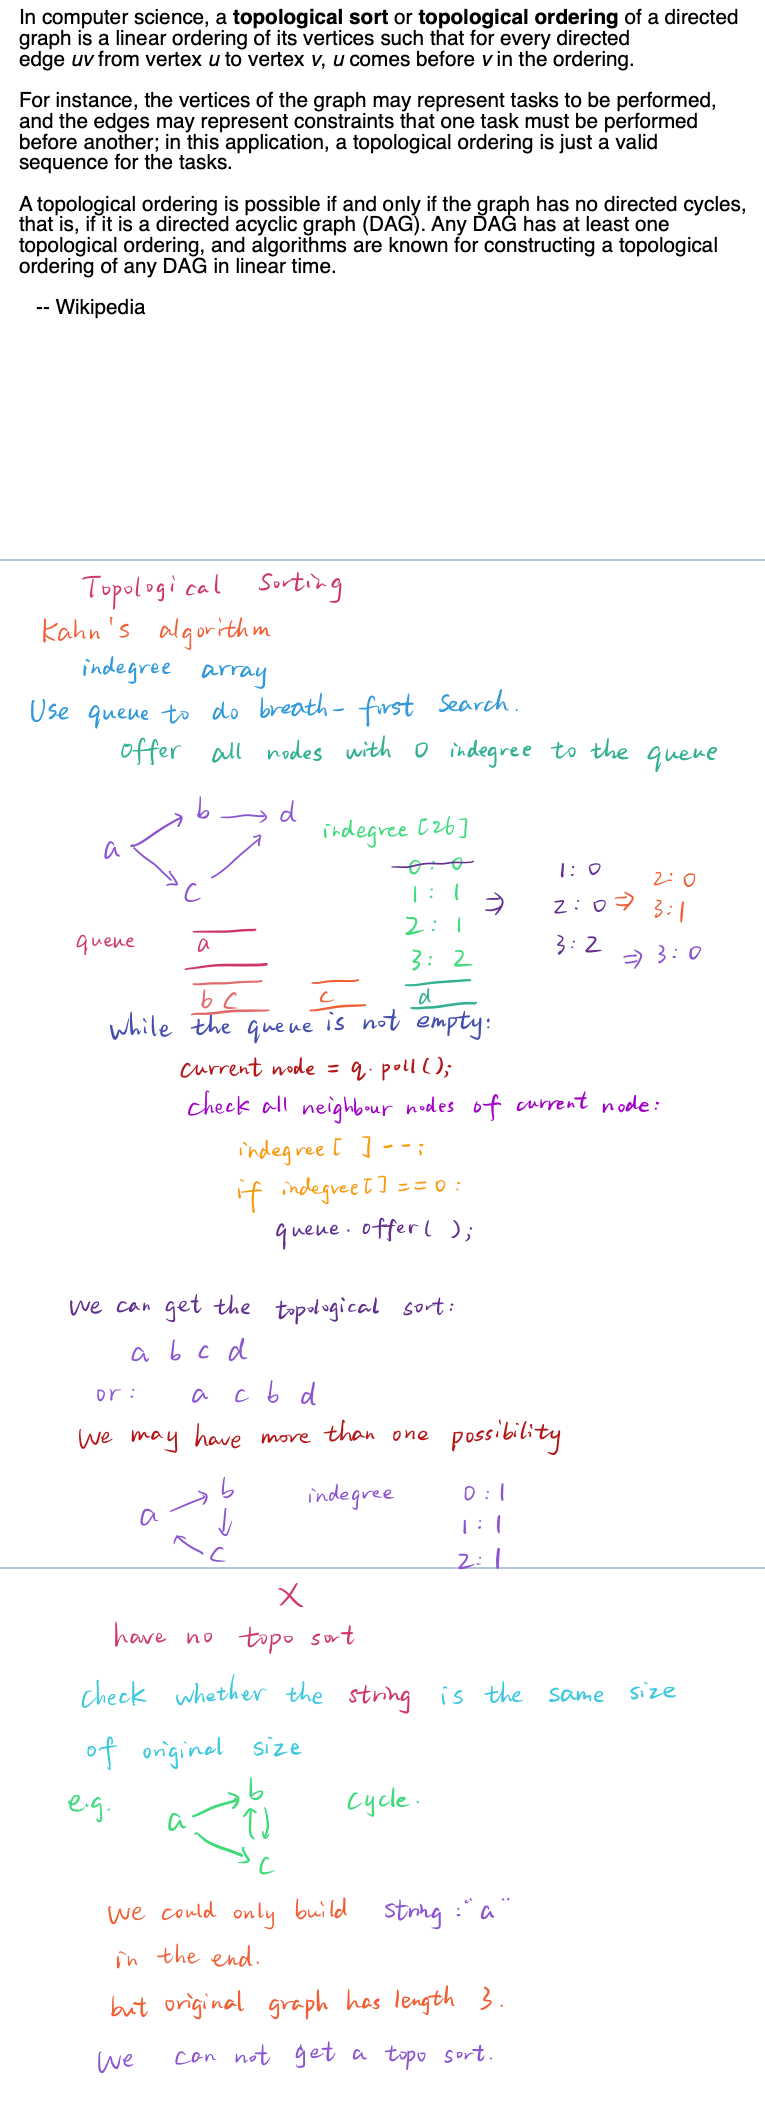 In computer science, a topological sort or topological ordering of a directed
graph is a linear ordering of its vertices such that for every directed
edge uv from vertex u to vertex v, u comes before v in the ordering.
For instance, the vertices of the graph may represent tasks to be performed,
and the edges may represent constraints that one task must be performed
before another; in this application, a topological ordering is just a valid
sequence for the tasks.
A topological ordering is possible if and only if the graph has no directed cycles,
that is, if it is a directed acyclic graph (DAG). Any DAG has at least one
topological ordering, and algorithms are known for constructing a topological
ordering of any DAG in linear time.
-- Wikipedia
Topological Sorting
Kahn's algorithm
indegree array
Use queue to do breath-first Search.
offer all nodes with 0 indegree to the queue
a b → d c
indegree [26]
0: 0
1: 1
2: 1
3: 2
⇒
1: 0
2: 0
3: 2
⇒
2: 0
3: 1
⇒ 3: 0
queue a
b c
c
d
while the queue is not empty:
current node = q.poll();
check all neighbour nodes of current node:
indegree[ ]--;
if indegree[] == 0:
queue.offer( );
we can get the topological sort:
a b c d
or: a c b d
We may have more than one possibility
a b c
indegree
0: 1
1: 1
2: 1
X
have no topo sort
check whether the string is the same size
of original size
e.g. a b c cycle.
we could only build string: "a"
in the end.
but original graph has length 3.
We can not get a topo sort.